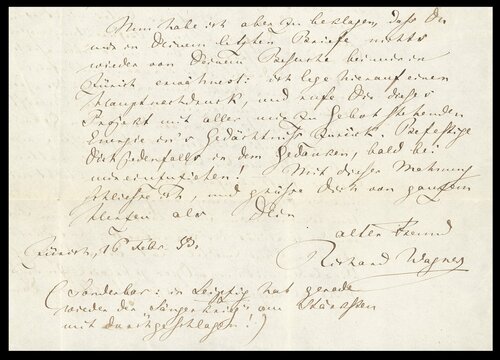 Nun habe ich aber zu beklagen, dass Du
mir in Deinem letzten Briefe nichts
wieder von Deinem Besuche bei mir in
Zürich erwähnst: ich lege hierauf einen
Hauptnachdruck, und rufe Dir dieses
Projekt mit aller mir zu Gebot stehenden
Energie in's Gedächtniss zurück. Befestige
Dich jedenfalls in dem Gedanken, bald bei
mir einzutreffen! Mit dieser Mahnung
schliesse ich, und grüsse Dich von ganzem
Herzen als Dein
alter Freund
Zürich, 16 Febr. 53.
Richard Wagner
(Sonderbar: in Leipzig hat gerade
wieder der Sängerkrieg am
mit durchgeschlagen!)